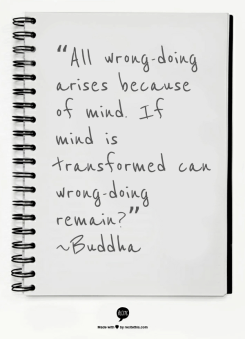 “All wrong-doing
arises because
of mind. If
mind is
transformed can
wrong-doing
remain?”
~Buddha
Made with ♥ by recitethis.com